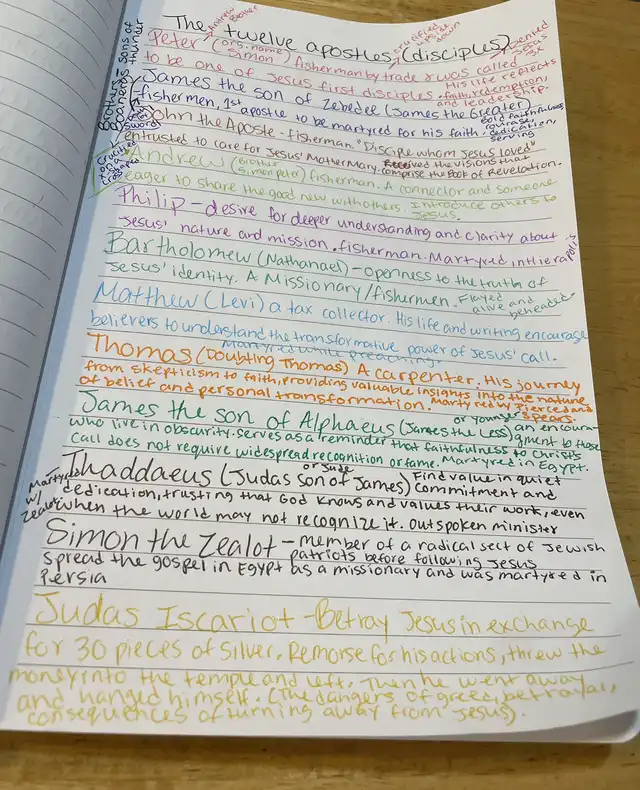 The twelve apostles (disciples)
Andrew Brother
crucified upside down
Peter (org. name Simon) fisherman by trade & was called
to be one of Jesus first disciples. His life reflects
faith, redemption,
and leadership.
Jesus 3x
Brothers - sons of thunder
James the son of Zebedee (James the Greater)
fishermen, 1st apostle to be martyred for his faith. Bold faithfulness,
courage,
dedication,
serving
John the Apostle - fisherman. "Disciple whom Jesus loved"
entrusted to care for Jesus' Mother Mary. Received the visions that
comprise the Book of Revelation.
crucified on a
Andrew (Brother Simon Peter) fisherman. A connector and someone
eager to share the good new with others. Introduce others to
Jesus.
Philip - desire for deeper understanding and clarity about
Jesus' nature and mission. fisherman. Martyred in Hierapolis
Bartholomew (Nathanael) - openness to the truth of
Jesus' identity. A Missionary/fishermen. Flayed
alive and
beheaded
Matthew (Levi) a tax collector. His life and writing encourage
believers to understand the transformative power of Jesus' call.
Martyred while preaching.
Thomas (Doubting Thomas) A carpenter. His journey
from skepticism to faith, providing valuable insights into the nature
of belief and personal transformation. Martyred by Pierced and
Spears.
James the son of Alphaeus (James the Less) or younger an encouragment to those
who live in obscurity. serves as a reminder that faithfulness to Christs
call does not require widespread recognition or fame. Martyred in Egypt.
Martyred w/ Zealot
Thaddaeus (Judas son of James) or Jude Find value in quiet
commitment and
dedication, trusting that God knows and values their work, even
when the world may not recognize it. Outspoken minister
Simon the Zealot - member of a radical sect of Jewish
patriots before following Jesus
spread the gospel in Egypt as a missionary and was martyred in
Persia
Judas Iscariot - Betray Jesus in exchange
for 30 pieces of silver. Remorse for his actions, threw the
money into the temple and left. Then he went away
and hanged himself. (The dangers of greed, betrayal,
consequences of turning away from Jesus).